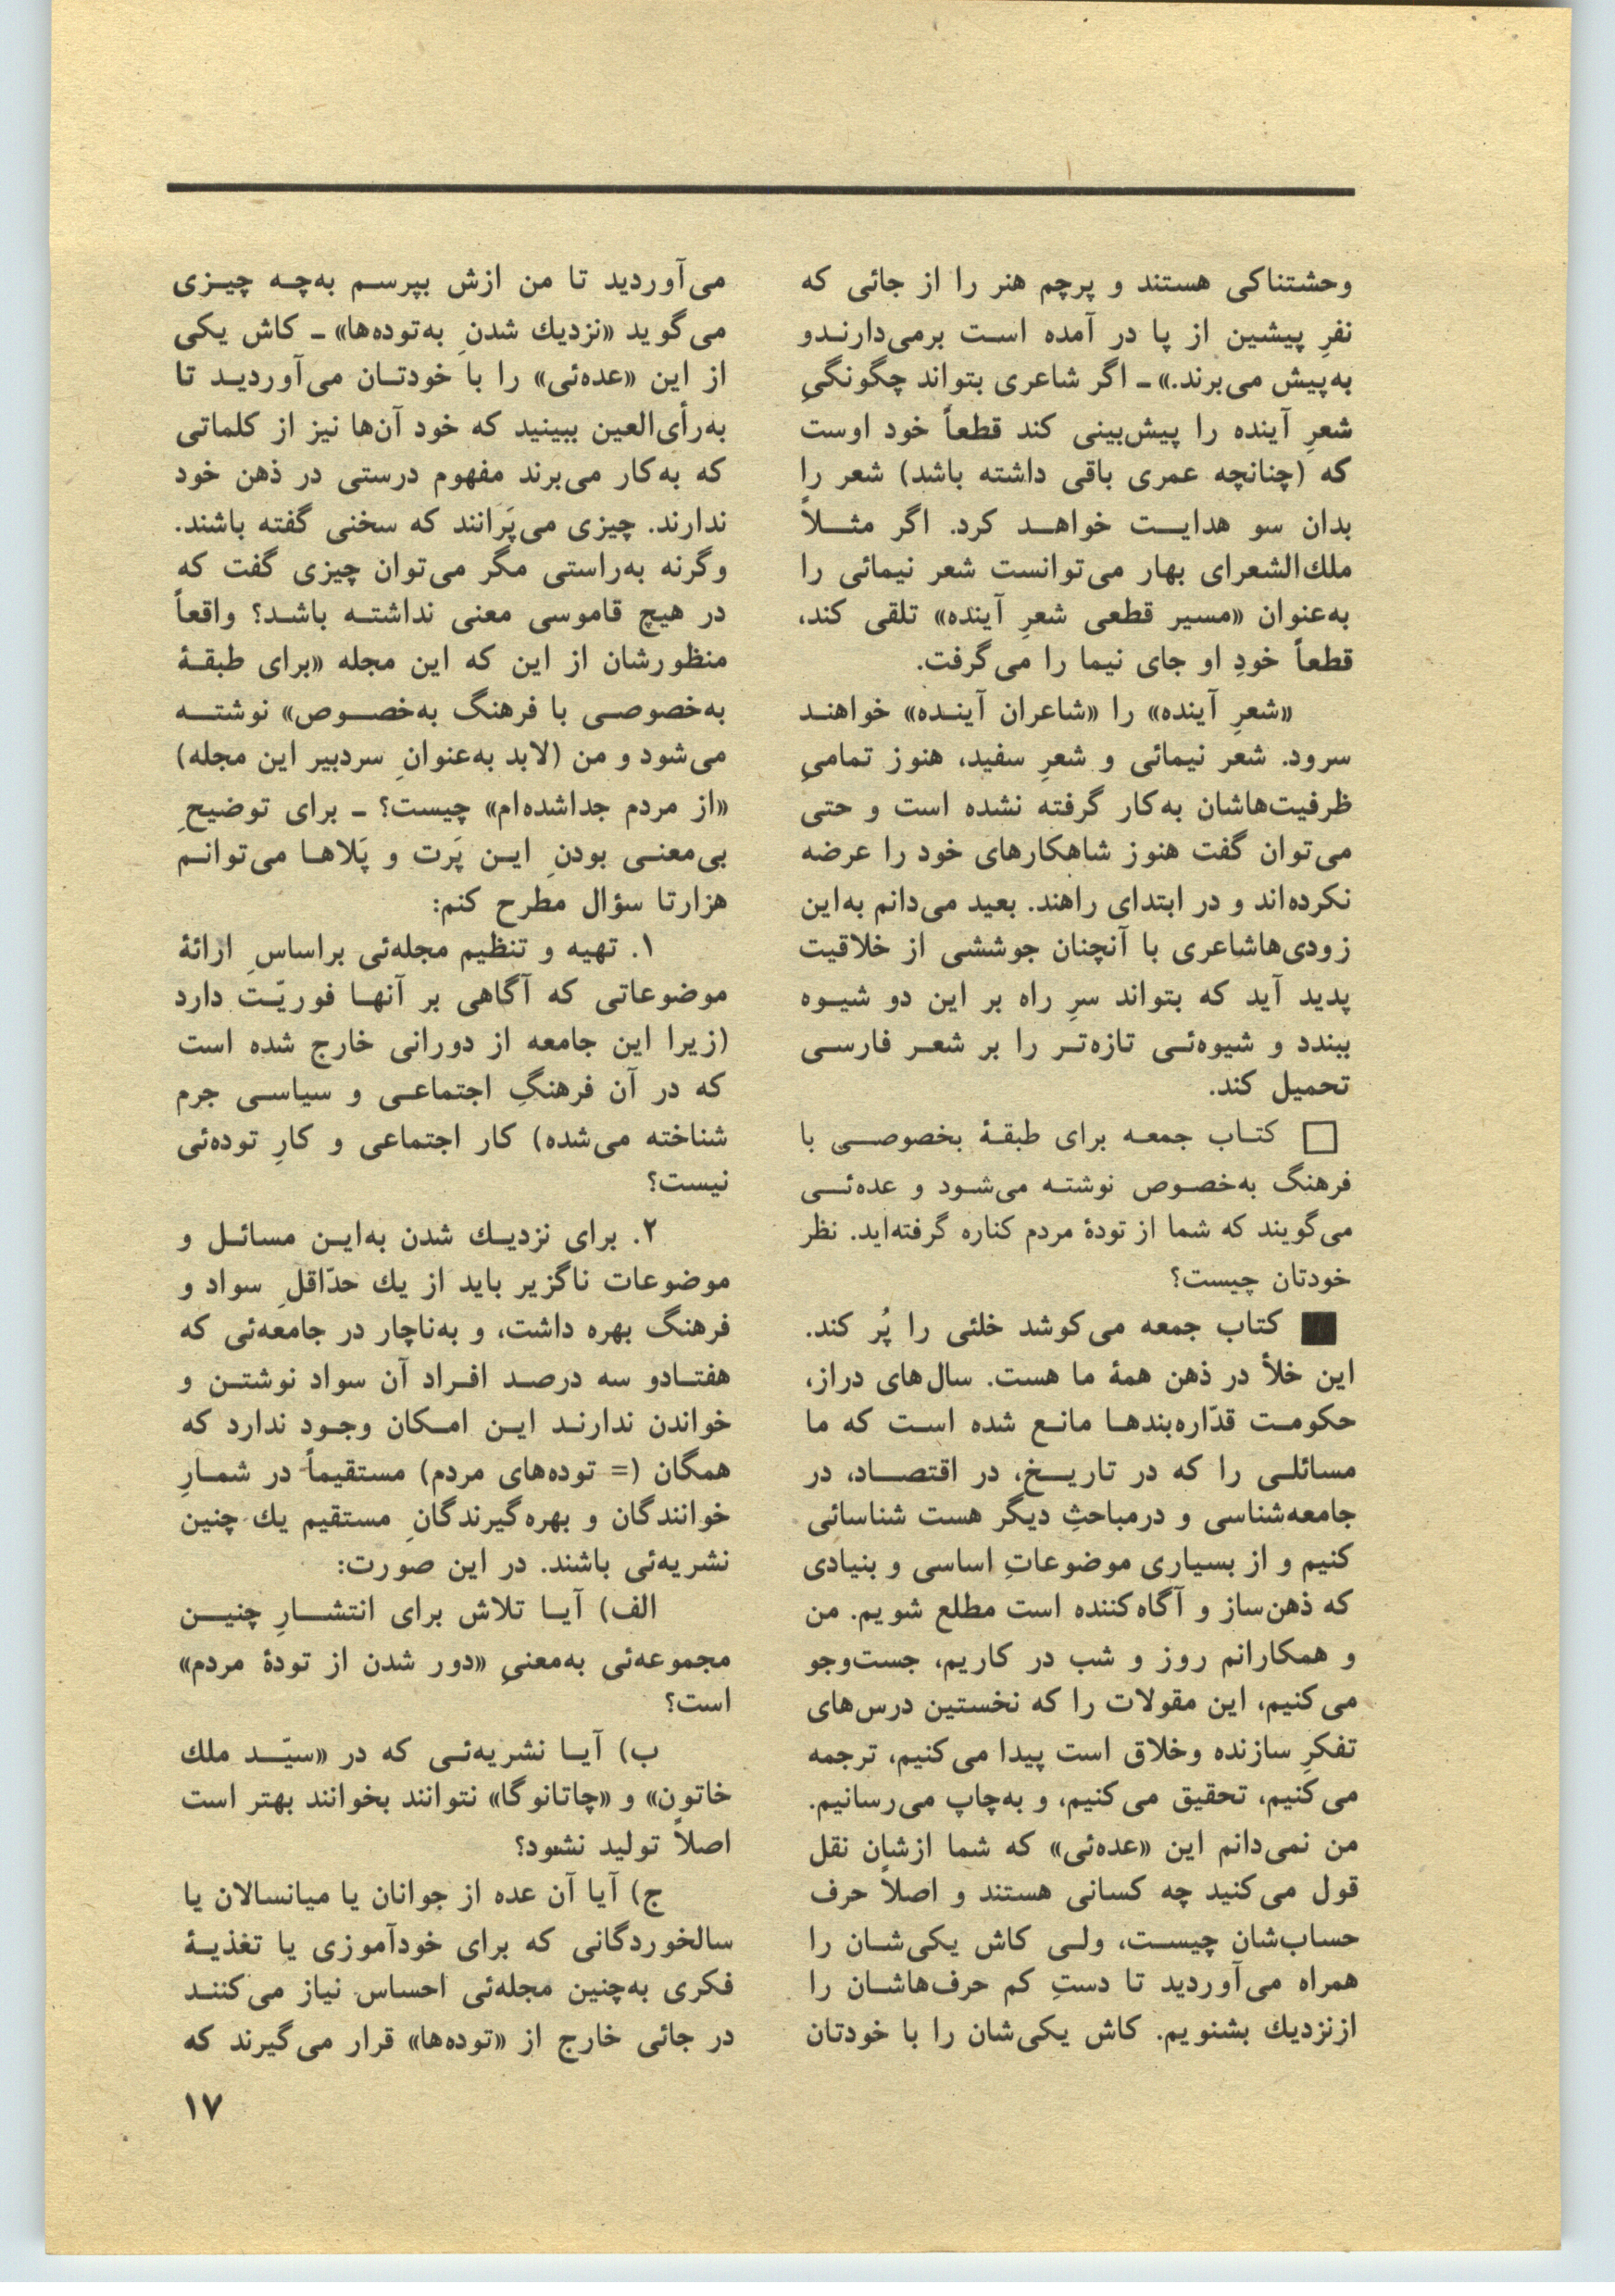 وحشتناکی هستند و پرچم هنر را از جائی که
نفرِ پیشین از پا در آمده است برمی‌دارندو
به‌پیش می‌برند.» ـ اگر شاعری بتواند چگونگیِ
شعرِ آینده را پیش‌بینی کند قطعاً خود اوست
که (چنانچه عمری باقی داشته باشد) شعر را
بدان سو هدایت خواهد کرد. اگر مثلاً
ملك‌الشعرای بهار می‌توانست شعر نیمائی را
به‌عنوان «مسیر قطعی شعرِ آینده» تلقی کند،
قطعاً خودِ او جای نیما را می‌گرفت.
«شعرِ آینده» را «شاعران آینده» خواهند
سرود. شعر نیمائی و شعرِ سفید، هنوز تمامیِ
ظرفیت‌هاشان به‌کار گرفته نشده است و حتی
می‌توان گفت هنوز شاهکارهای خود را عرضه
نکرده‌اند و در ابتدای راهند. بعید می‌دانم به‌این
زودی‌هاشاعری با آنچنان جوششی از خلاقیت
پدید آید که بتواند سرِ راه بر این دو شیوه
ببندد و شیوه‌ئی تازه‌تر را بر شعر فارسی
تحمیل کند.
□ کتاب جمعه برای طبقهٔ بخصوصی با
فرهنگ به‌خصوص نوشته می‌شود و عده‌ئی
می‌گویند که شما از تودهٔ مردم کناره گرفته‌اید. نظر
خودتان چیست؟
■ کتاب جمعه می‌کوشد خلئی را پُر کند.
این خلأ در ذهن همهٔ ما هست. سال‌های دراز،
حکومت قدّاره‌بندها مانع شده است که ما
مسائلی را که در تاریخ، در اقتصاد، در
جامعه‌شناسی و درمباحثِ دیگر هست شناسائی
کنیم و از بسیاری موضوعاتِ اساسی و بنیادی
که ذهن‌ساز و آگاه‌کننده است مطلع شویم. من
و همکارانم روز و شب در کاریم، جست‌وجو
می‌کنیم، این مقولات را که نخستین درس‌های
تفکرِ سازنده وخلاق است پیدا می‌کنیم، ترجمه
می‌کنیم، تحقیق می‌کنیم، و به‌چاپ می‌رسانیم.
من نمی‌دانم این «عده‌ئی» که شما ازشان نقل
قول می‌کنید چه کسانی هستند و اصلاً حرف
حساب‌شان چیست، ولی کاش یکی‌شان را
همراه می‌آوردید تا دستِ کم حرف‌هاشان را
ازنزدیك بشنویم. کاش یکی‌شان را با خودتان
می‌آوردید تا من ازش بپرسم به‌چه چیزی
می‌گوید «نزدیك شدنِ به‌توده‌ها» ـ کاش یکی
از این «عده‌ئی» را با خودتان می‌آوردید تا
به‌رأی‌العین ببینید که خود آن‌ها نیز از کلماتی
که به‌کار می‌برند مفهوم درستی در ذهن خود
ندارند. چیزی می‌پَرانند که سخنی گفته باشند.
وگرنه به‌راستی مگر می‌توان چیزی گفت که
در هیچ قاموسی معنی نداشته باشد؟ واقعاً
منظورشان از این که این مجله «برای طبقهٔ
به‌خصوصی با فرهنگ به‌خصوص» نوشته
می‌شود و من (لابد به‌عنوانِ سردبیر این مجله)
«از مردم جداشده‌ام» چیست؟ ـ برای توضیحِ
بی‌معنی بودنِ این پَرت و پَلاها می‌توانم
هزارتا سؤال مطرح کنم:
۱. تهیه و تنظیم مجله‌ئی براساسِ ارائهٔ
موضوعاتی که آگاهی بر آنها فوریّت دارد
(زیرا این جامعه از دورانی خارج شده است
که در آن فرهنگِ اجتماعی و سیاسی جرم
شناخته می‌شده) کار اجتماعی و کارِ توده‌ئی
نیست؟
۲. برای نزدیك شدن به‌این مسائل و
موضوعات ناگزیر باید از یك حدّاقلِ سواد و
فرهنگ بهره داشت، و به‌ناچار در جامعه‌ئی که
هفتادو سه درصد افراد آن سواد نوشتن و
خواندن ندارند این امکان وجود ندارد که
همگان (= توده‌های مردم) مستقیماً در شمارِ
خوانندگان و بهره‌گیرندگانِ مستقیم یك چنین
نشریه‌ئی باشند. در این صورت:
الف) آیا تلاش برای انتشارِ چنین
مجموعه‌ئی به‌معنیِ «دور شدن از تودهٔ مردم»
است؟
ب) آیا نشریه‌ئی که در «سیّد ملك
خاتون» و «چاتانوگا» نتوانند بخوانند بهتر است
اصلاً تولید نشود؟
ج) آیا آن عده از جوانان یا میانسالان یا
سالخوردگانی که برای خودآموزی یا تغذیهٔ
فکری به‌چنین مجله‌ئی احساس نیاز می‌کنند
در جائی خارج از «توده‌ها» قرار می‌گیرند که
۱۷